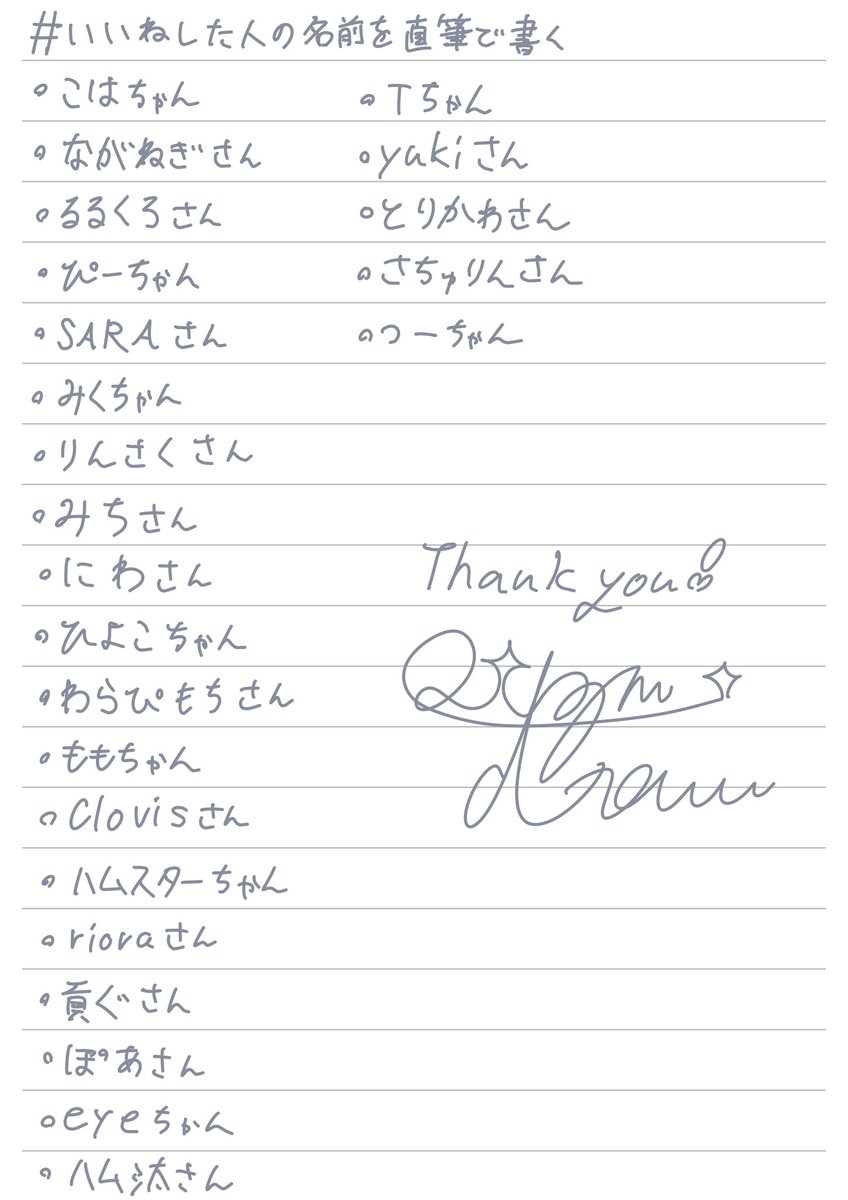 #いいねした人の名前を直筆で書く
。こはちゃん
。ながねぎさん
。るるくろさん
。ぴーちゃん
。SARAさん
。みくちゃん
。りんさくさん
。みちさん
。にわさん
。ひよこちゃん
。わらぴもちさん
。ももちゃん
。Clovisさん
。ハムスターちゃん
。rioraさん
。貢ぐさん
。ぽあさん
。eyeちゃん
。ハム汰さん
。Tちゃん
。yukiさん
。とりかわさん
。さちゅりんさん
。つーちゃん
Thank you